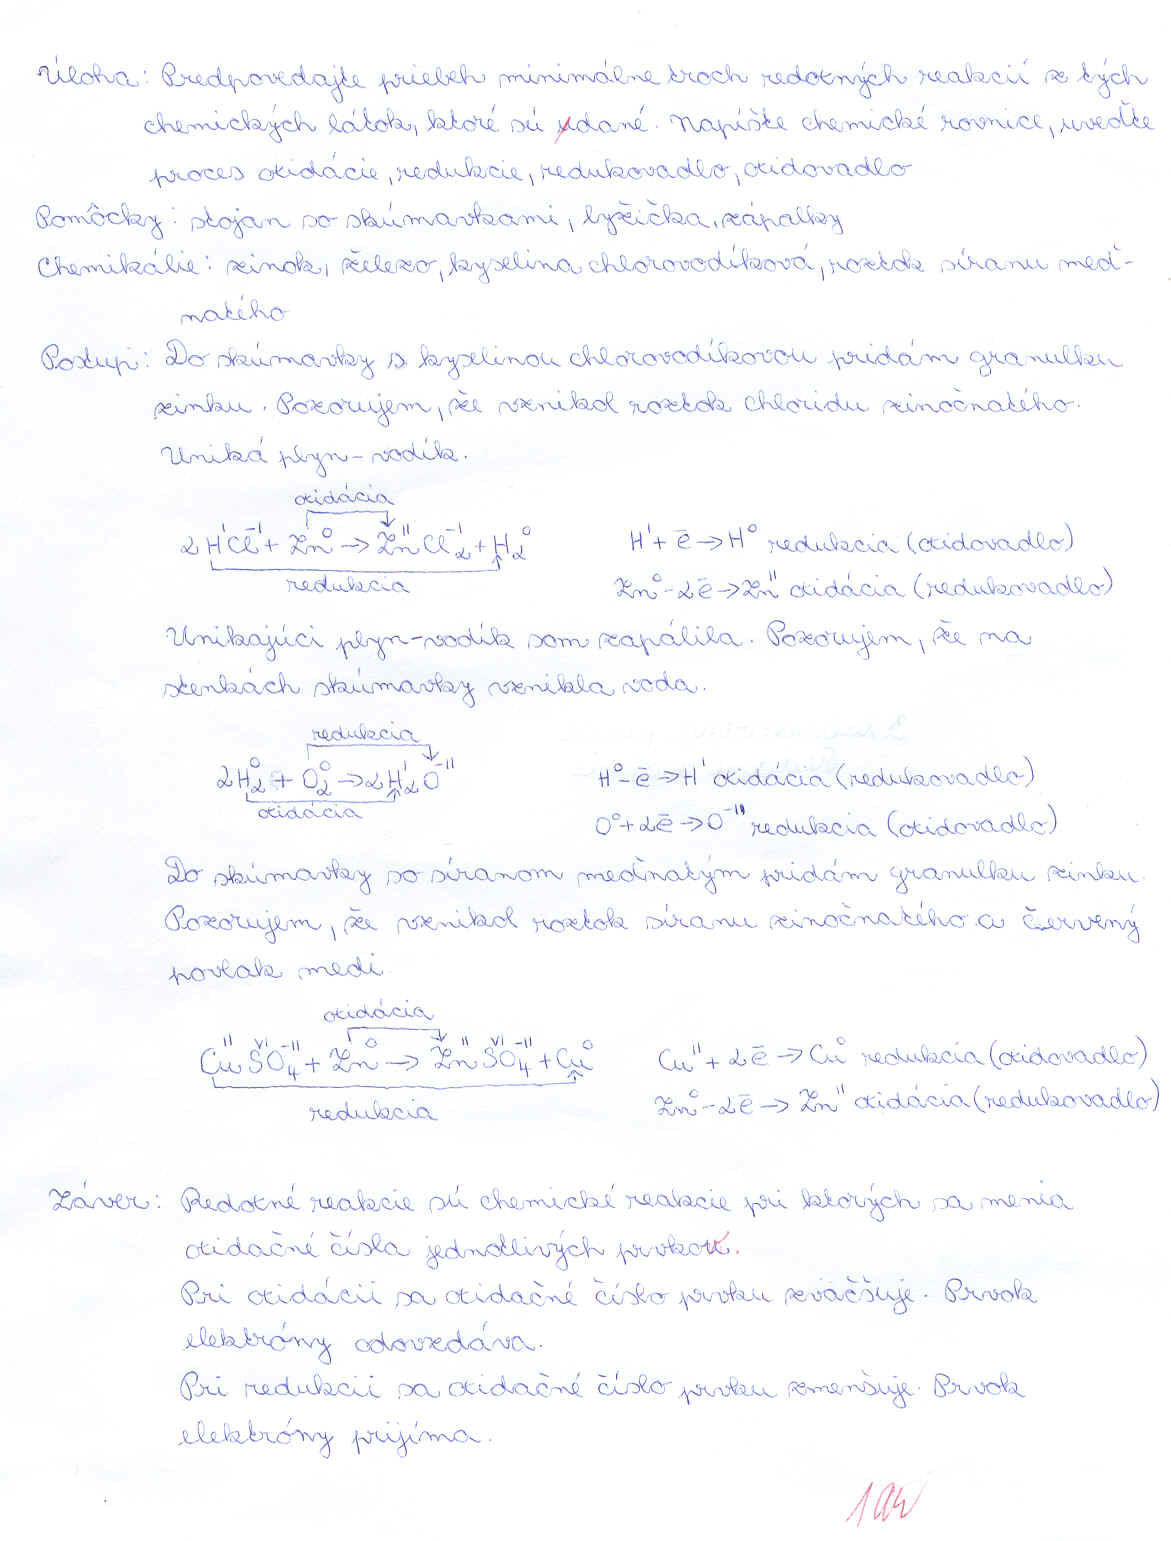 Úloha: Predpovedajte priebeh minimálne troch redoxných reakcií z tých
chemických látok, ktoré sú udané. Napíšte chemické rovnice, uveďte
proces oxidácie, redukcie, redukovadlo, oxidovadlo
Pomôcky: stojan so skúmavkami, lyžička, zápalky
Chemikálie: zinok, železo, kyselina chlorovodíková, roztok síranu meď-
natého
Postup: Do skúmavky s kyselinou chlorovodíkovou pridám granulku
zinku. Pozorujem, že vznikol roztok chloridu zinočnatého.
Uniká plyn - vodík.
oxidácia
2HᴵCl⁻ᴵ + Zn⁰ → ZnᴵᴵCl₂⁻ᴵ + H₂⁰ Hᴵ + ē → H⁰ redukcia (oxidovadlo)
redukcia Zn⁰ - 2ē → Znᴵᴵ oxidácia (redukovadlo)
Unikajúci plyn - vodík som zapálila. Pozorujem, že na
stenkách skúmavky vznikla voda.
redukcia
2H₂⁰ + O₂⁰ → 2H₂ᴵO⁻ᴵᴵ H⁰ - ē → Hᴵ oxidácia (redukovadlo)
oxidácia O⁰ + 2ē → O⁻ᴵᴵ redukcia (oxidovadlo)
Do skúmavky so síranom meďnatým pridám granulku zinku.
Pozorujem, že vznikol roztok síranu zinočnatého a červený
povlak medi.
oxidácia
CuᴵᴵSⱽᴵO₄⁻ᴵᴵ + Zn⁰ → ZnᴵᴵSⱽᴵO₄⁻ᴵᴵ + Cu⁰ Cuᴵᴵ + 2ē → Cu⁰ redukcia (oxidovadlo)
redukcia Zn⁰ - 2ē → Znᴵᴵ oxidácia (redukovadlo)
Záver: Redoxné reakcie sú chemické reakcie pri ktorých sa menia
oxidačné čísla jednotlivých prvkov.
Pri oxidácii sa oxidačné číslo prvku zväčšuje. Prvok
elektróny odovzdáva.
Pri redukcii sa oxidačné číslo prvku zmenšuje. Prvok
elektróny prijíma.